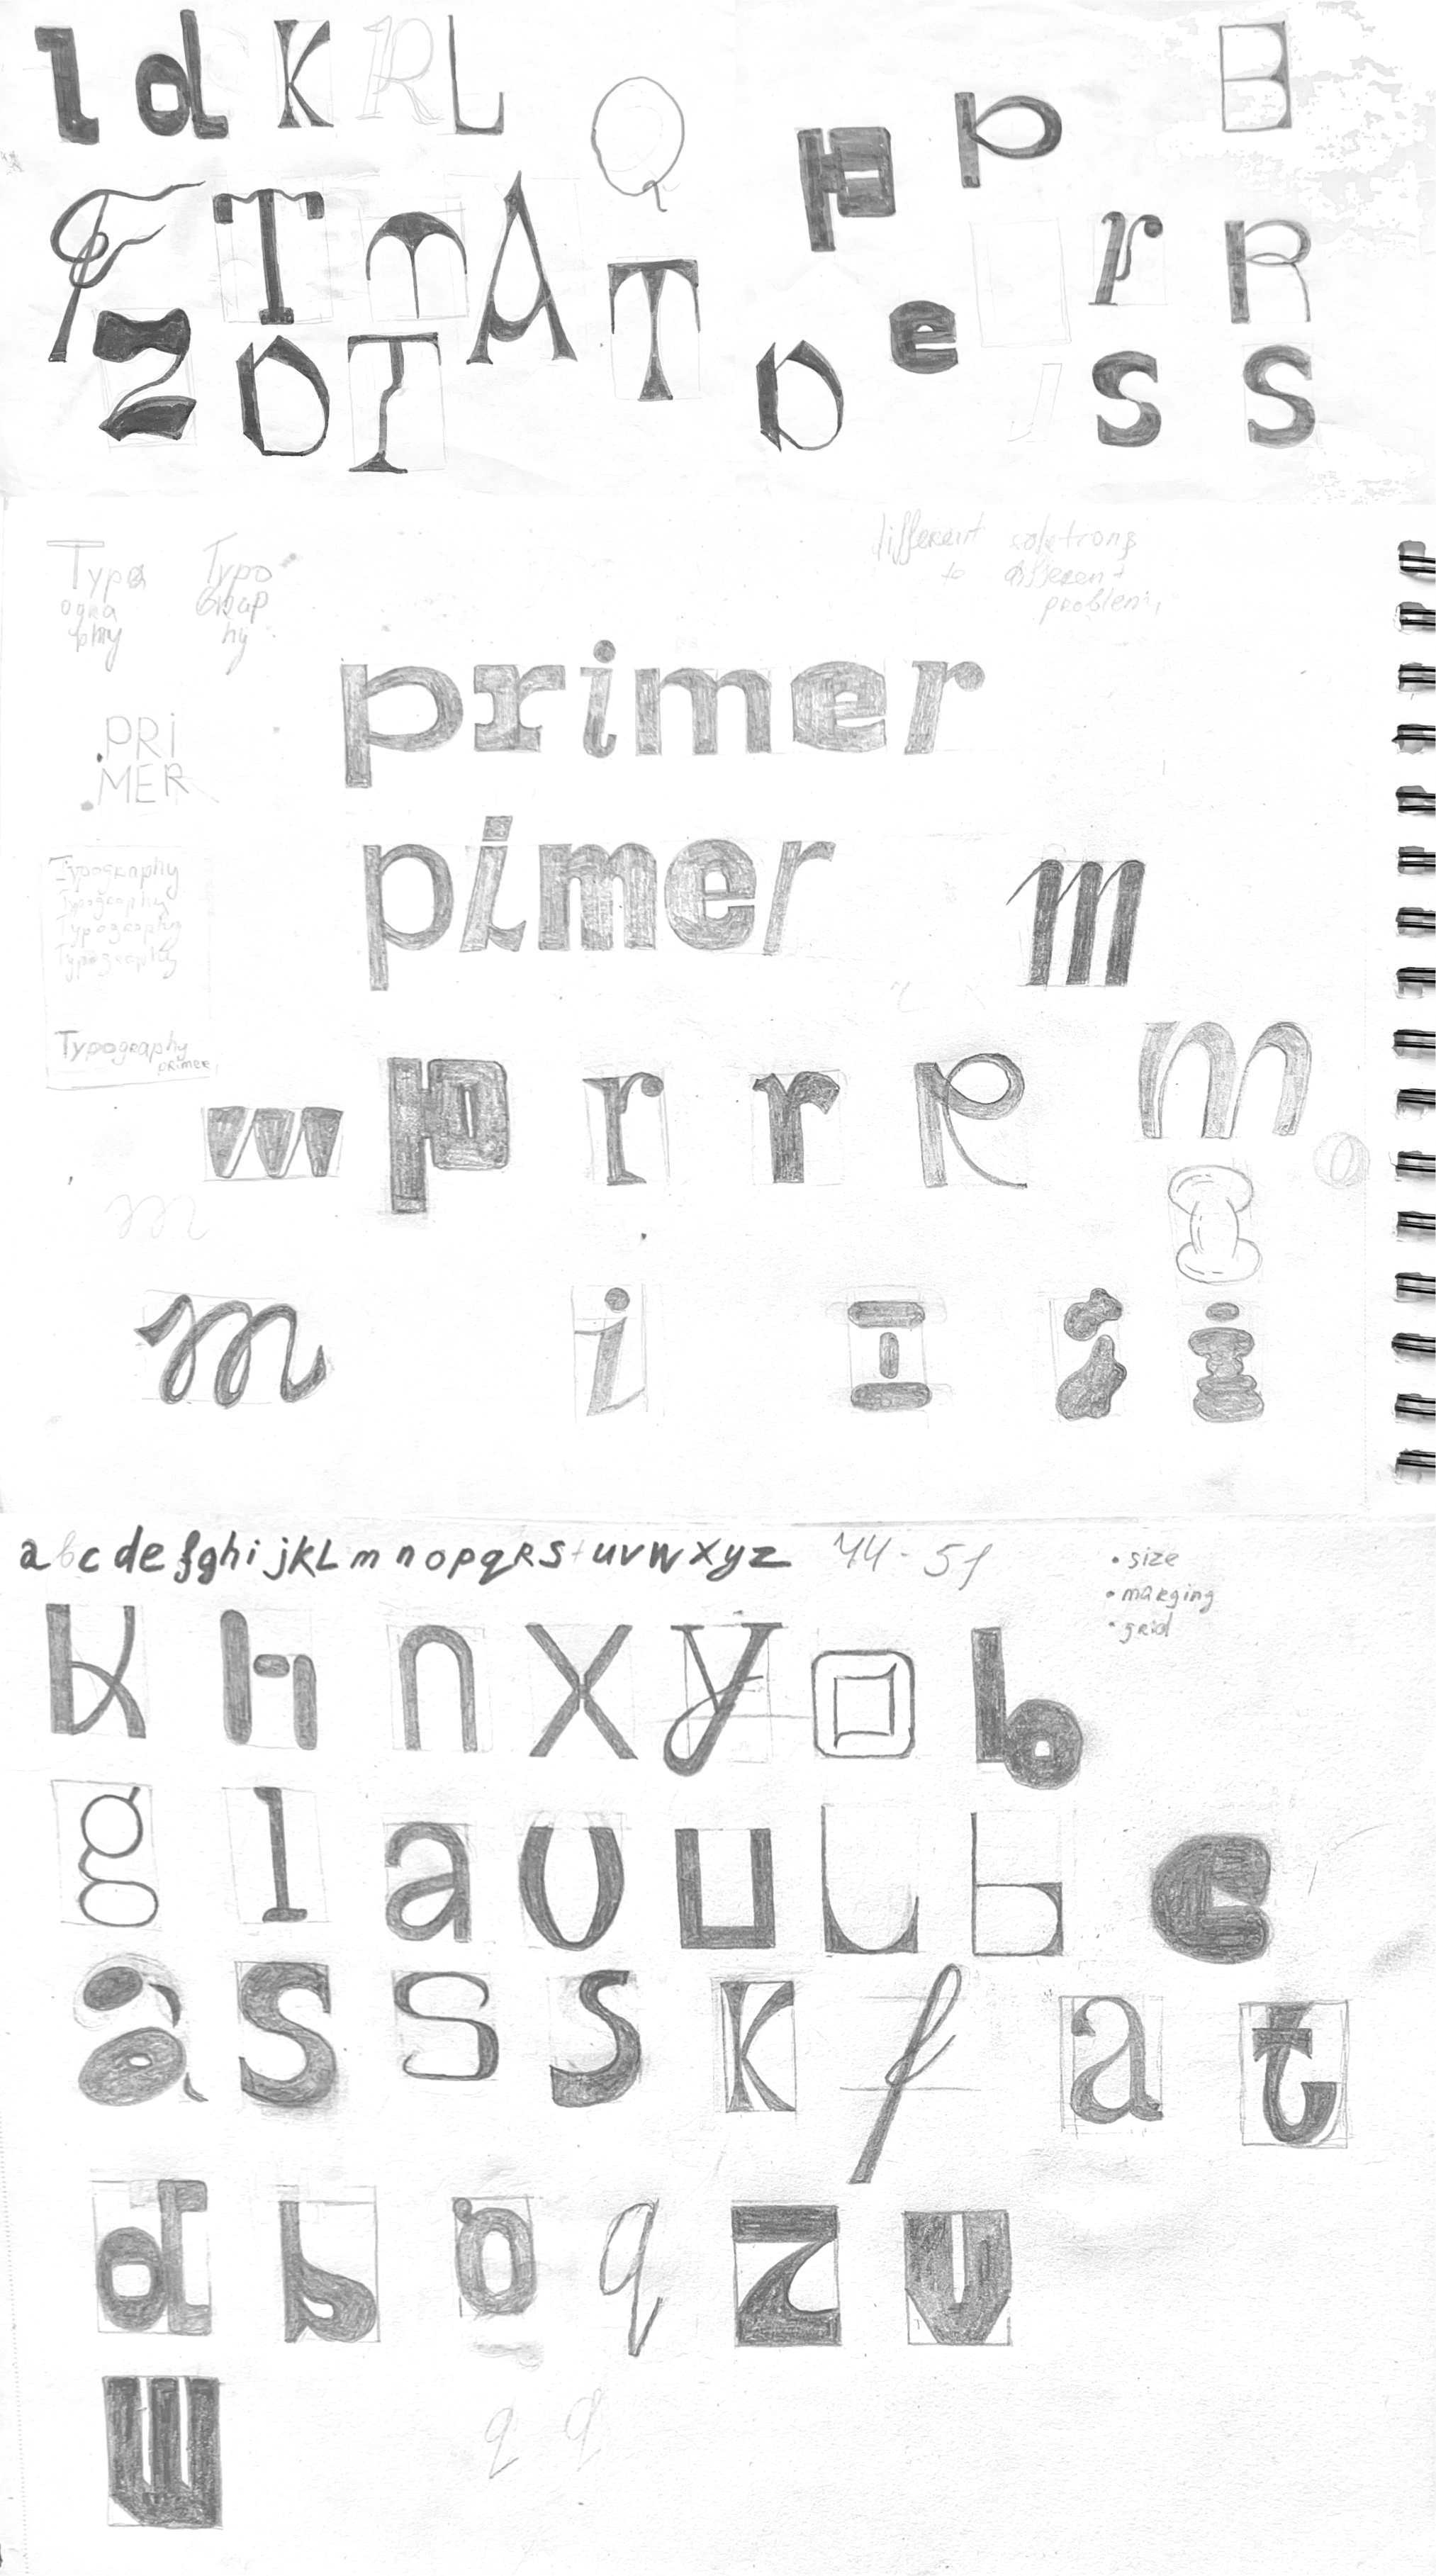 l d K R L
Q
B
p p
F T T A T
r R
e
Z D T
D
J S S
Typo
ogra
phy
Typo
Grap
hy
different solutions
to different
problems
primer
.PRi
.MER
pimer
m
Typography
Typography
Typography
Typography
Typography
primer
w p r r R m
m
m i i i i
a b c d e f g h i j k L m n o p q R s t u v w x y z
44-51
• size
• marging
• grid
k h n x y o b
g l a u u u b e
a s s s k f a t
d b o q z v
w
q q